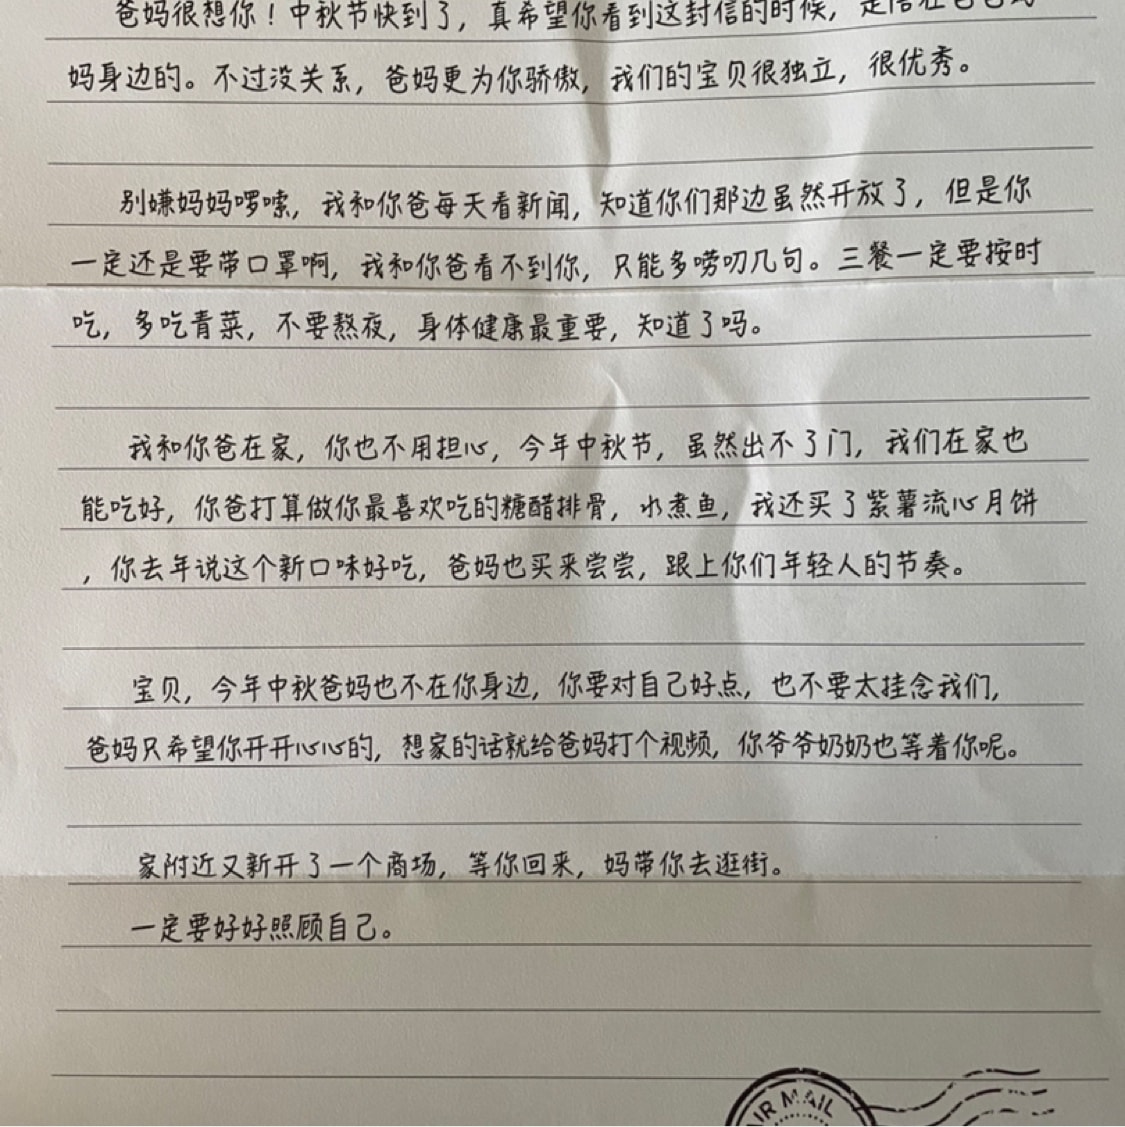 爸妈很想你！中秋节快到了，真希望你看到这封信的时候，是陪在爸爸妈
妈身边的。不过没关系，爸妈更为你骄傲，我们的宝贝很独立，很优秀。
别嫌妈妈啰嗦，我和你爸每天看新闻，知道你们那边虽然开放了，但是你
一定还是要带口罩啊，我和你爸看不到你，只能多唠叨几句。三餐一定要按时
吃，多吃青菜，不要熬夜，身体健康最重要，知道了吗。
我和你爸在家，你也不用担心，今年中秋节，虽然出不了门，我们在家也
能吃好，你爸打算做你最喜欢吃的糖醋排骨，水煮鱼，我还买了紫薯流心月饼
，你去年说这个新口味好吃，爸妈也买来尝尝，跟上你们年轻人的节奏。
宝贝，今年中秋爸妈也不在你身边，你要对自己好点，也不要太挂念我们，
爸妈只希望你开开心心的，想家的话就给爸妈打个视频，你爷爷奶奶也等着你呢。
家附近又新开了一个商场，等你回来，妈带你去逛街。
一定要好好照顾自己。
AIR MAIL